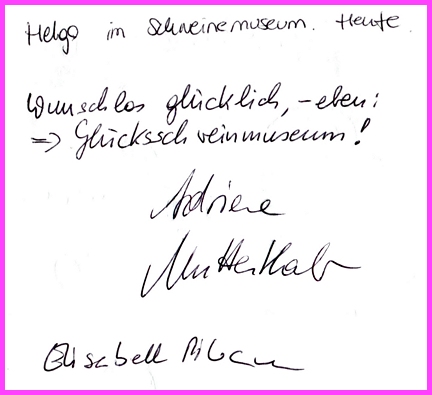 Helga im Schweinemuseum. Heute.
Wunschlos glücklich, - eben:
=> Glücksschweinmuseum!
Adriene
Elisabeth